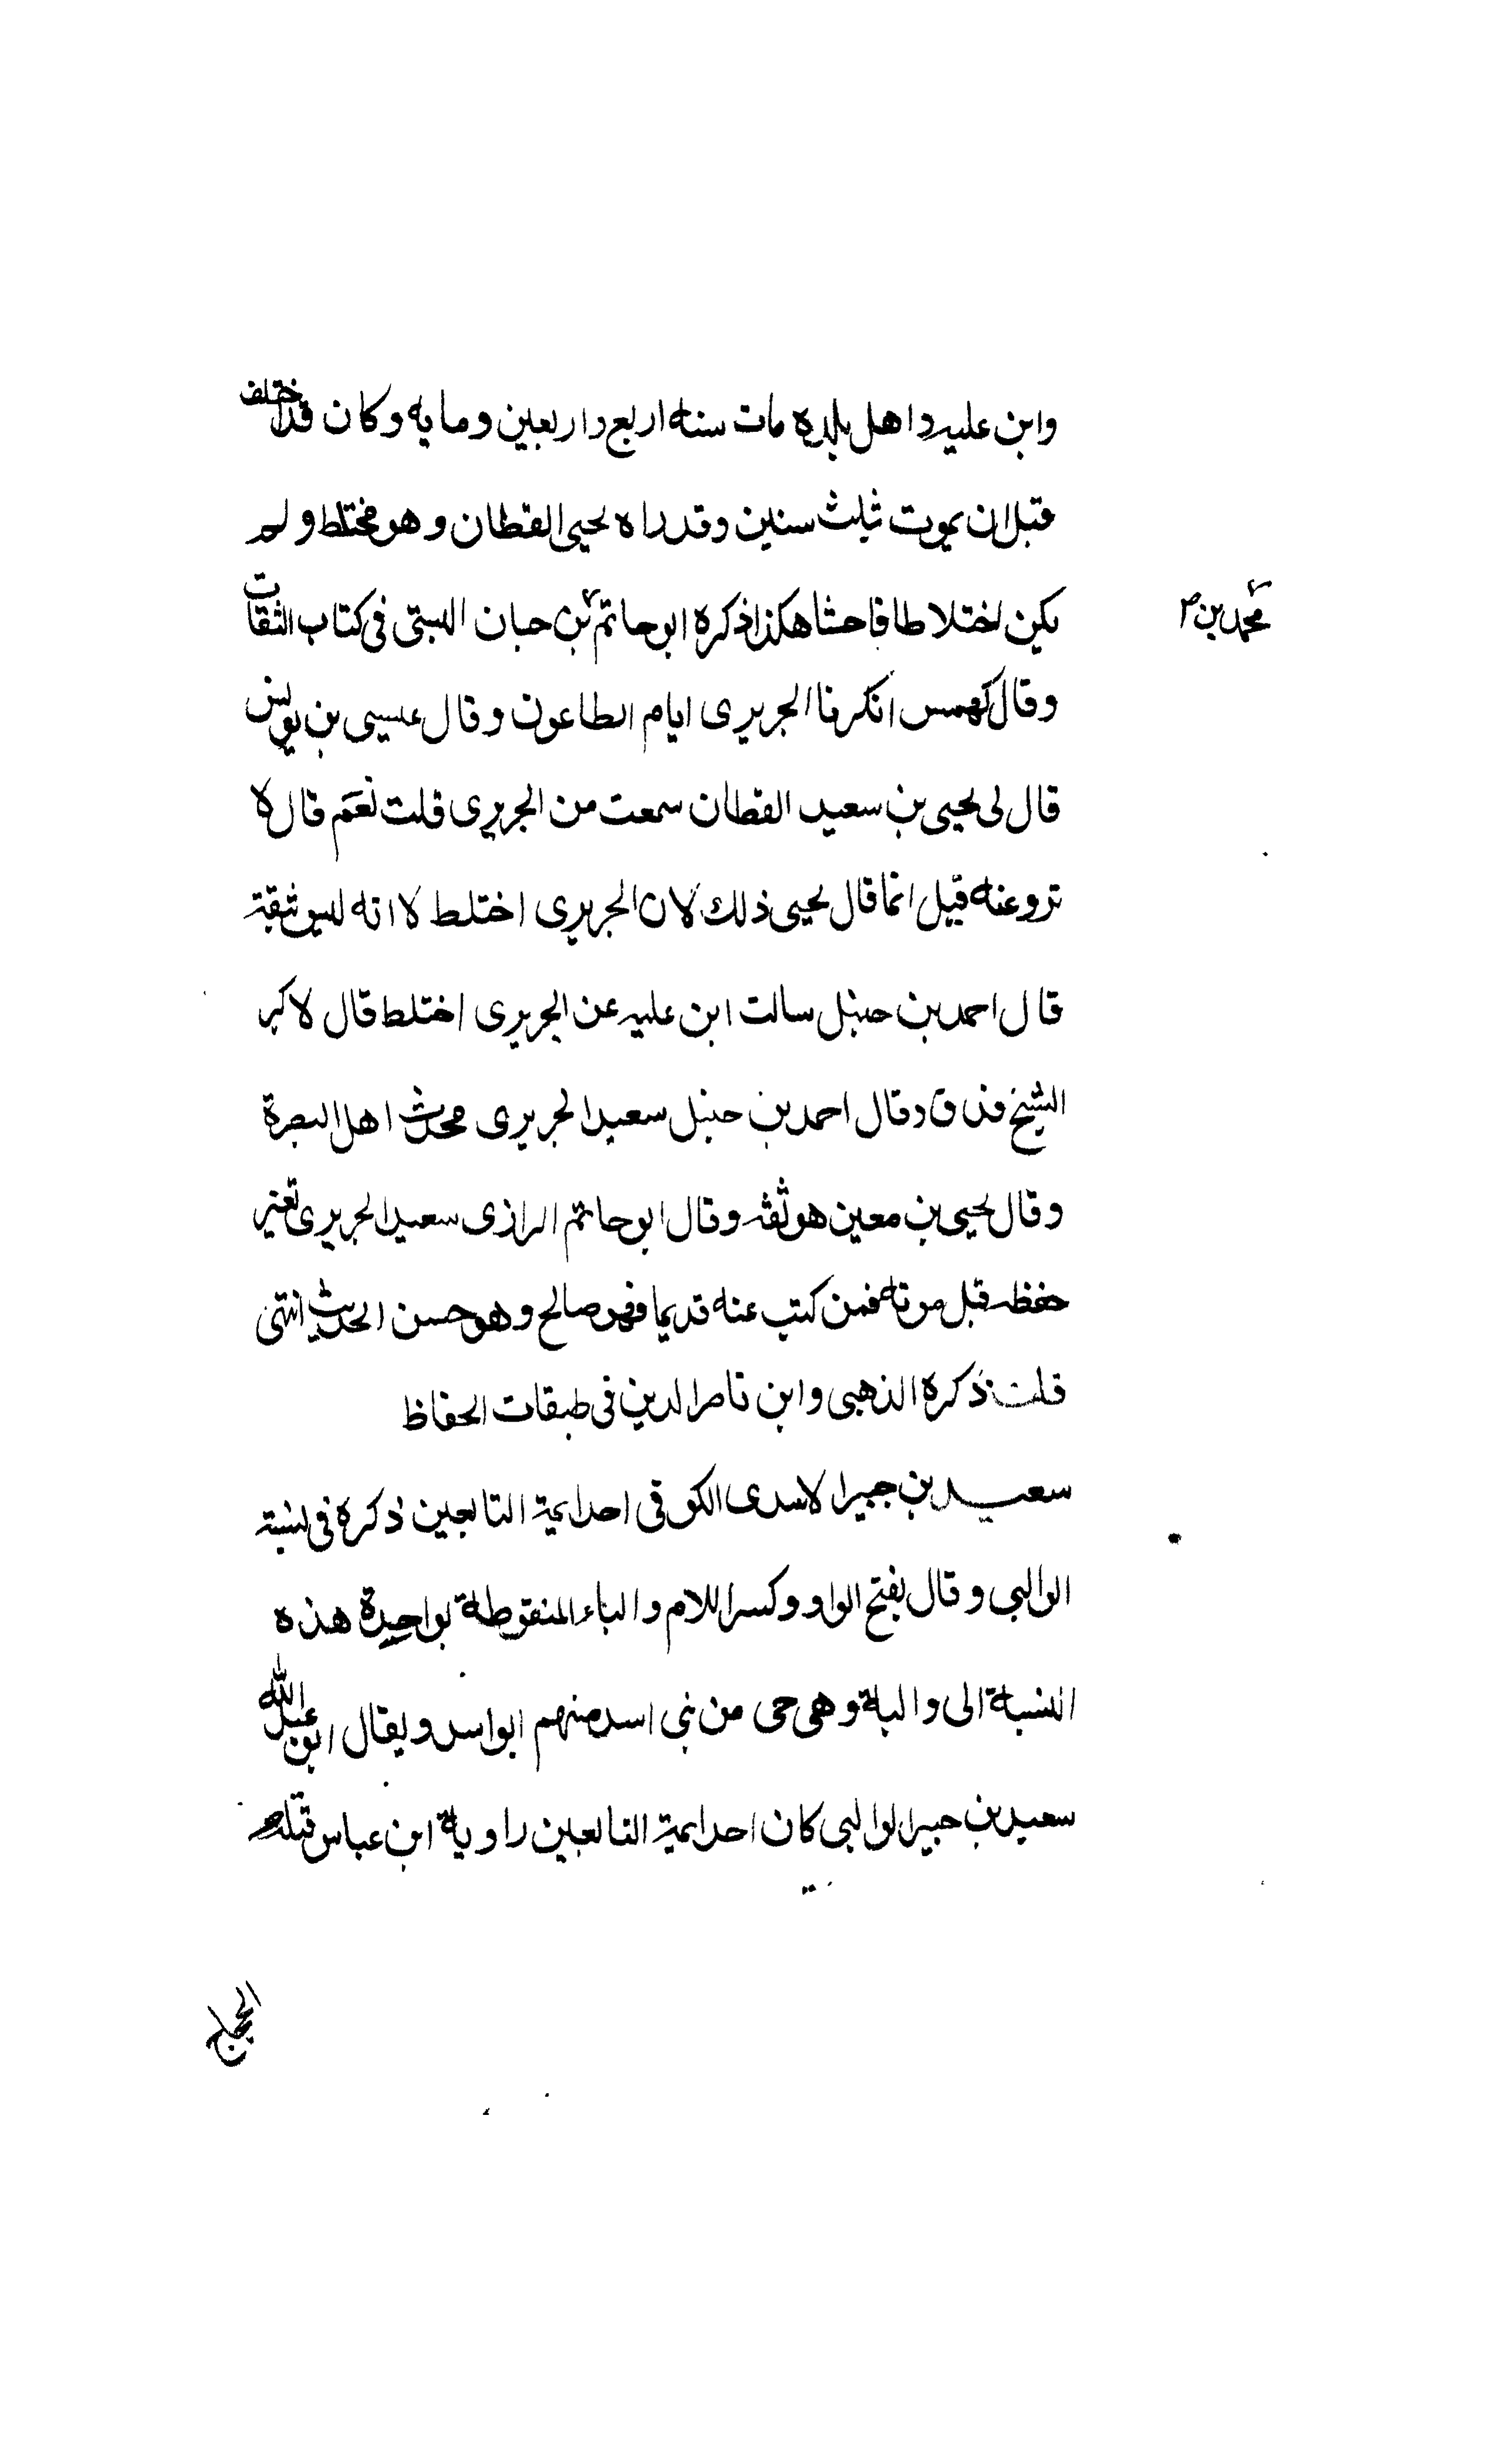 وابن عليه واهل بلده مات سنه اربع واربعين ومايه وكان قد اختلف
قبل ان يموت ثلث سنين وقد راه يحيى القطان وهو مختلط ولم
يكن اختلاطا فاحشا هكذا ذكره ابو حاتم بن حبان البستى فى كتاب الثقات
محمد بن صح
وقال كهمس انكرنا الجريرى ايام الطاعون وقال عيسى بن يونس
قال لى يحيى بن سعيد القطان سمعت من الجريرى قلت نعم قال لا
تروعنه قيل انما قال يحيى ذلك لان الجريرى اختلط لا انه ليس بثقة
قال احمد بن حنبل سالت ابن عليه عن الجريرى اختلط قال لا كبر
الشيخ فرق وقال احمد بن حنبل سعيد الجريرى محدث اهل البصرة
وقال يحيى بن معين هو ثقه وقال ابو حاتم الرازى سعيد الجريرى تغير
حفظه قبل موته فمن كتب عنه قديما فهو صالح وهو حسن الحديث انتهى
قلت ذكره الذهبى وابن ناصر الدين فى طبقات الحفاظ
سعيد بن جبير الاسدى الكوفى احد ايمة التابعين ذكره فى نسبة
الوالبى وقال بفتح الواو وكسر اللام والباء المنقوطة بواحدة هذه
النسبة الى والبة وهى حى من بنى اسد منهم ابو اسد ويقال ابو عبد الله
سعيد بن جبير الوالبى كان احد ايمة التابعين راوية ابن عباس قتله
الحجاج